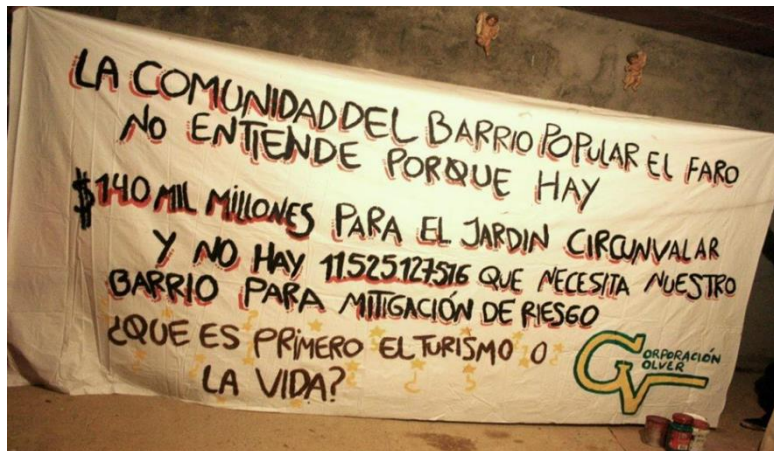 LA COMUNIDAD DEL BARRIO POPULAR EL FARO
NO ENTIENDE PORQUE HAY
$140 MIL MILLONES PARA EL JARDIN CIRCUNVALAR
Y NO HAY 11.525.127.516 QUE NECESITA NUESTRO
BARRIO PARA MITIGACIÓN DE RIESGO
¿QUE ES PRIMERO EL TURISMO O
LA VIDA?
CORPORACIÓN
VOLVER